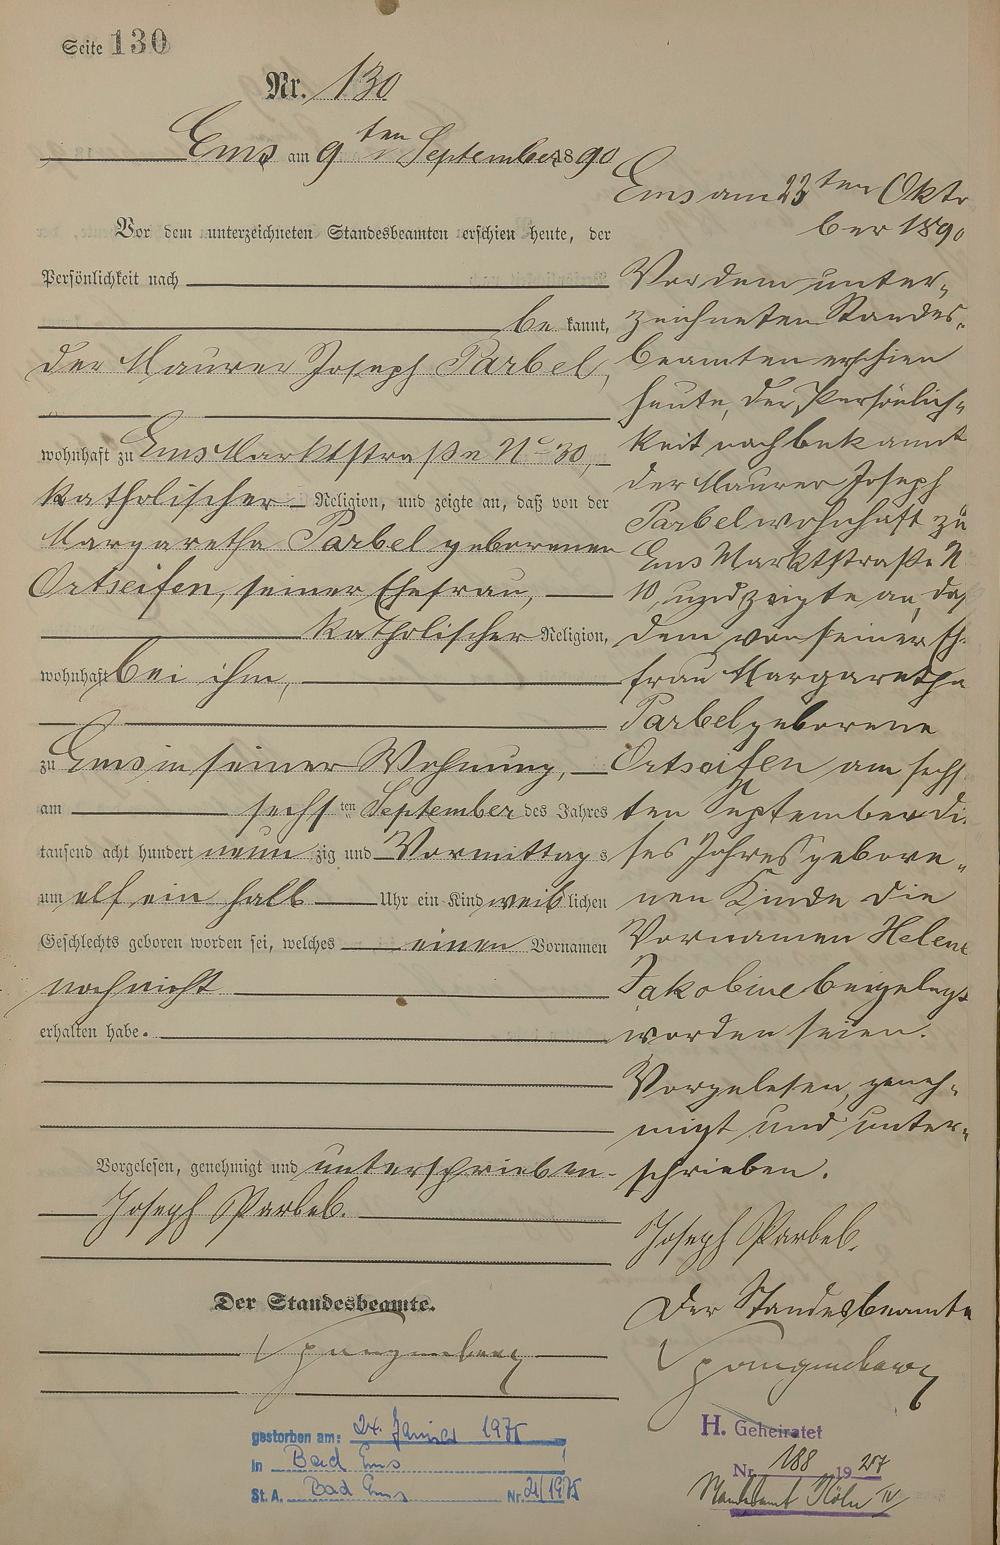 Seite 130
Nr. 130
Ems am 9ten September 1890
Vor dem unterzeichneten Standesbeamten erschien heute, der
Persönlichkeit nach
be kannt,
der Maurer Joseph Parbel,
wohnhaft zu Ems Marktstraße No 30,
katholischer Religion, und zeigte an, daß von der
Margaretha Parbel geborenen
Ortseifen, seiner Ehefrau,
katholischer Religion,
wohnhaft bei ihm,
zu Ems in seiner Wohnung,
am sechsten September des Jahres
tausend acht hundert neun zig und Vormittags
um elf ein halb Uhr ein Kind weiblichen
Geschlechts geboren worden sei, welches einen Vornamen
noch nicht
erhalten habe.
Vorgelesen, genehmigt und unterschrieben.
Joseph Parbel.
Der Standesbeamte.
Spangenberg
Ems am 23ten Okto
ber 1890
Vor dem unter-
zeichneten Standes-
beamten erschien
heute, der Persönlich-
keit nach bekannt
der Maurer Joseph
Parbel wohnhaft zu
Ems Marktstraße N
und zeigte an, daß
dem von seiner Eh-
frau Margaretha
Parbel geborene
Ortseifen am sechs
ten September die
ses Jahres gebore-
nen Kinde die
Vornamen Helene
Jakobine beigelegt
worden seien.
Vorgelesen, geneh-
migt und unter-
schrieben.
Joseph Parbel.
Der Standesbeamte
Spangenberg
gestorben am: 24. Januar 1975
in Bad Ems
St. A. Bad Ems Nr. 21/1975
H. Geheiratet
Nr. 188 19
Standesamt Köln IV